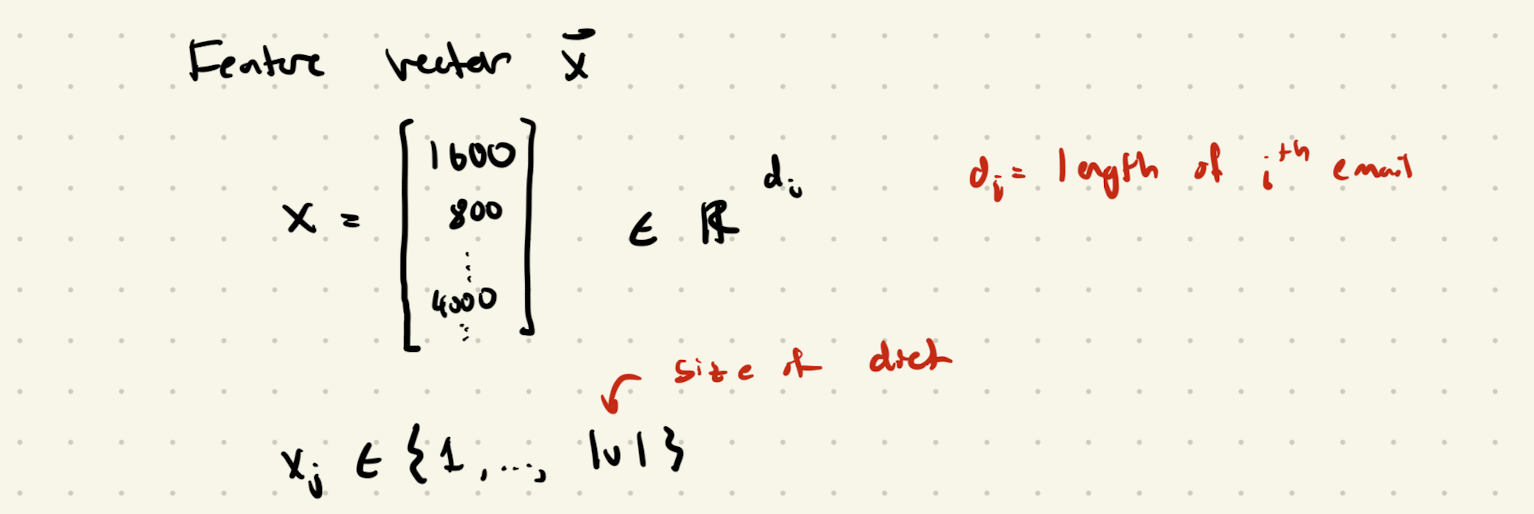 Feature vector x̄
x = [ 1600
800
⋮
4000
⋮ ] ∈ ℝ^{d_i}    d_i = length of i^{th} email
size of dict
x_j ∈ {1, ..., |v|}